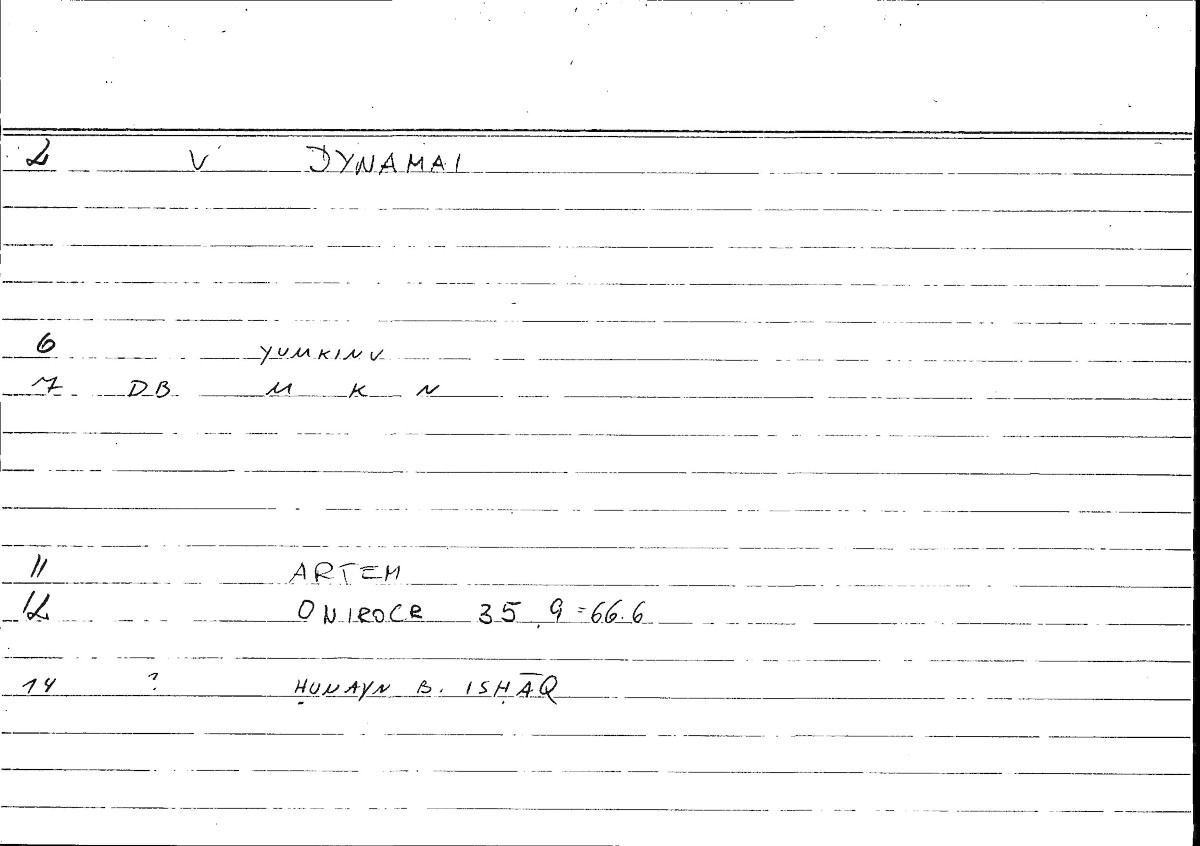 2 V DYNAMAI
6 YUMKINU
7 DB M K N
11 ARTEM
12 ONIROCR 35,9=66.6
14 ? ḤUNAYN B. ISḤĀQ